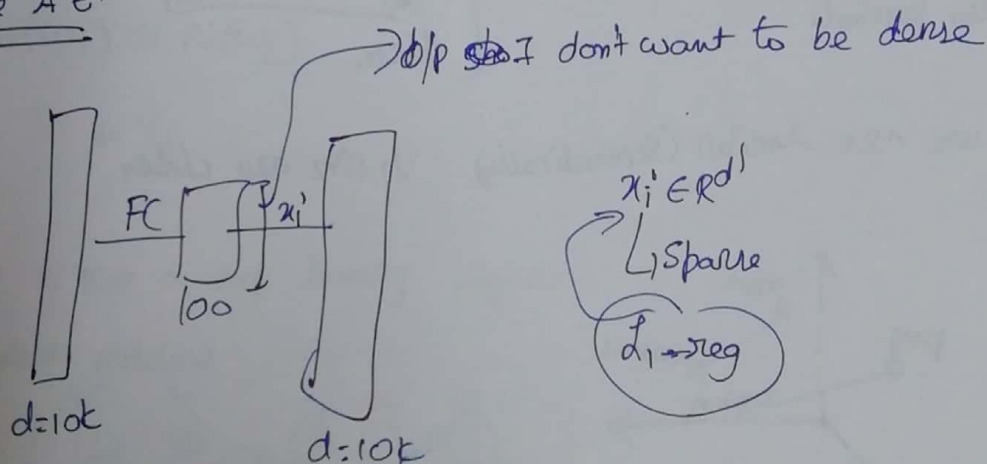 AE
o/p I don't want to be dense
FC
xi'
100
d=10k
d=10k
xi' ∈ R^d'
↳ Sparse
L1-reg